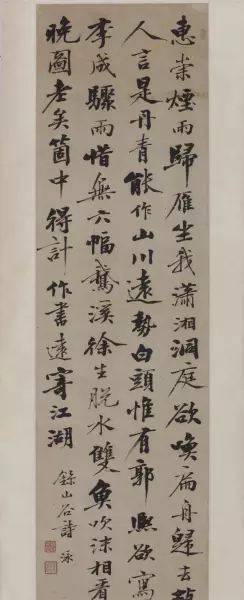 惠崇煙雨歸雁坐我瀟湘洞庭欲喚扁舟歸去故
人言是丹青能作山川遠勢白頭惟有郭熙欲寫
李成驟雨惜無六幅鵝溪徐生脫水雙魚吹沫相看
晚圖老矣箇中得計作書遠寄江湖
錄山谷詩 泳